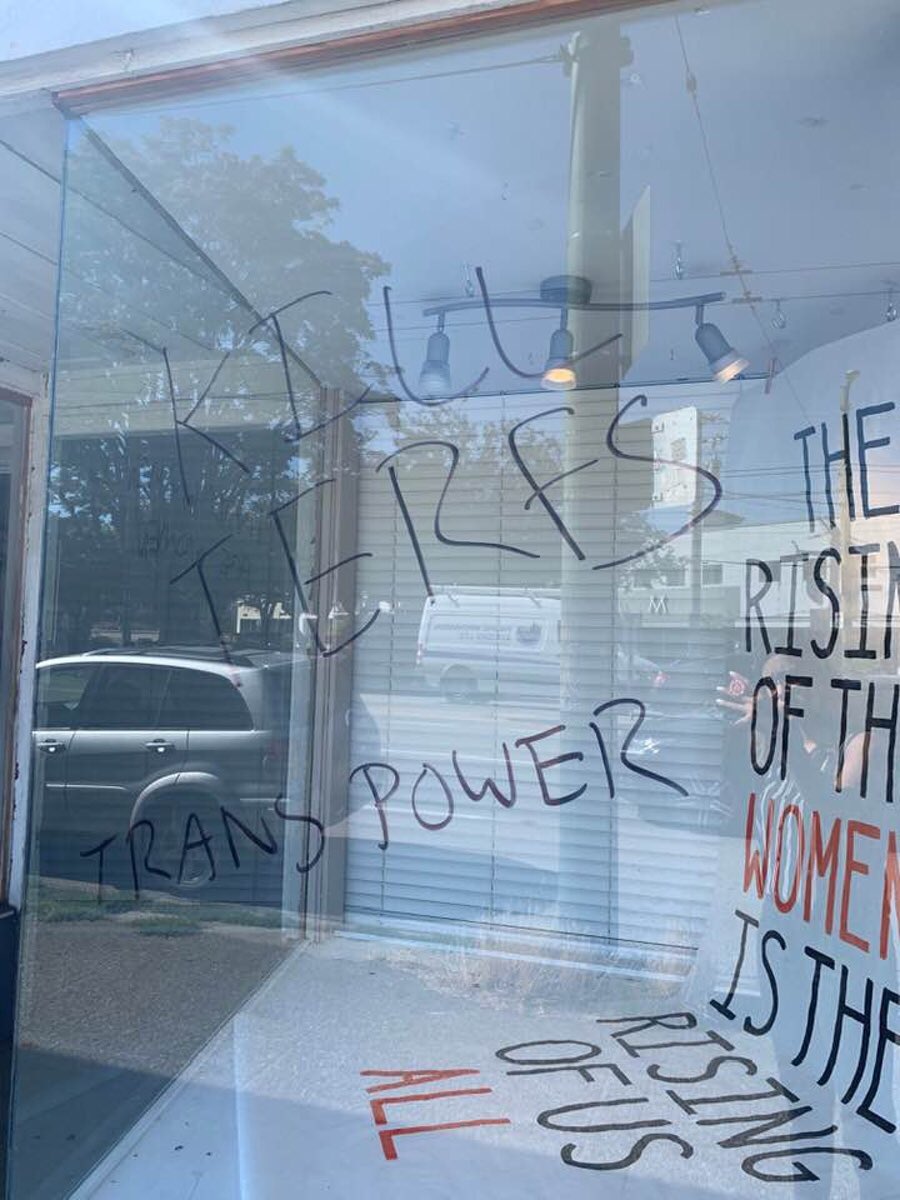 KILL
TERFS
TRANS POWER
THE
RISIN
OF TH
WOMEN
IS THE
RISING
OF US
ALL